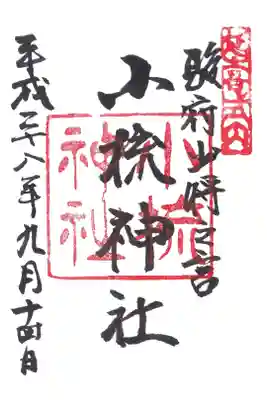 駿府少将之宮
小梳神社
小梳神社
平成二十八年九月十四日